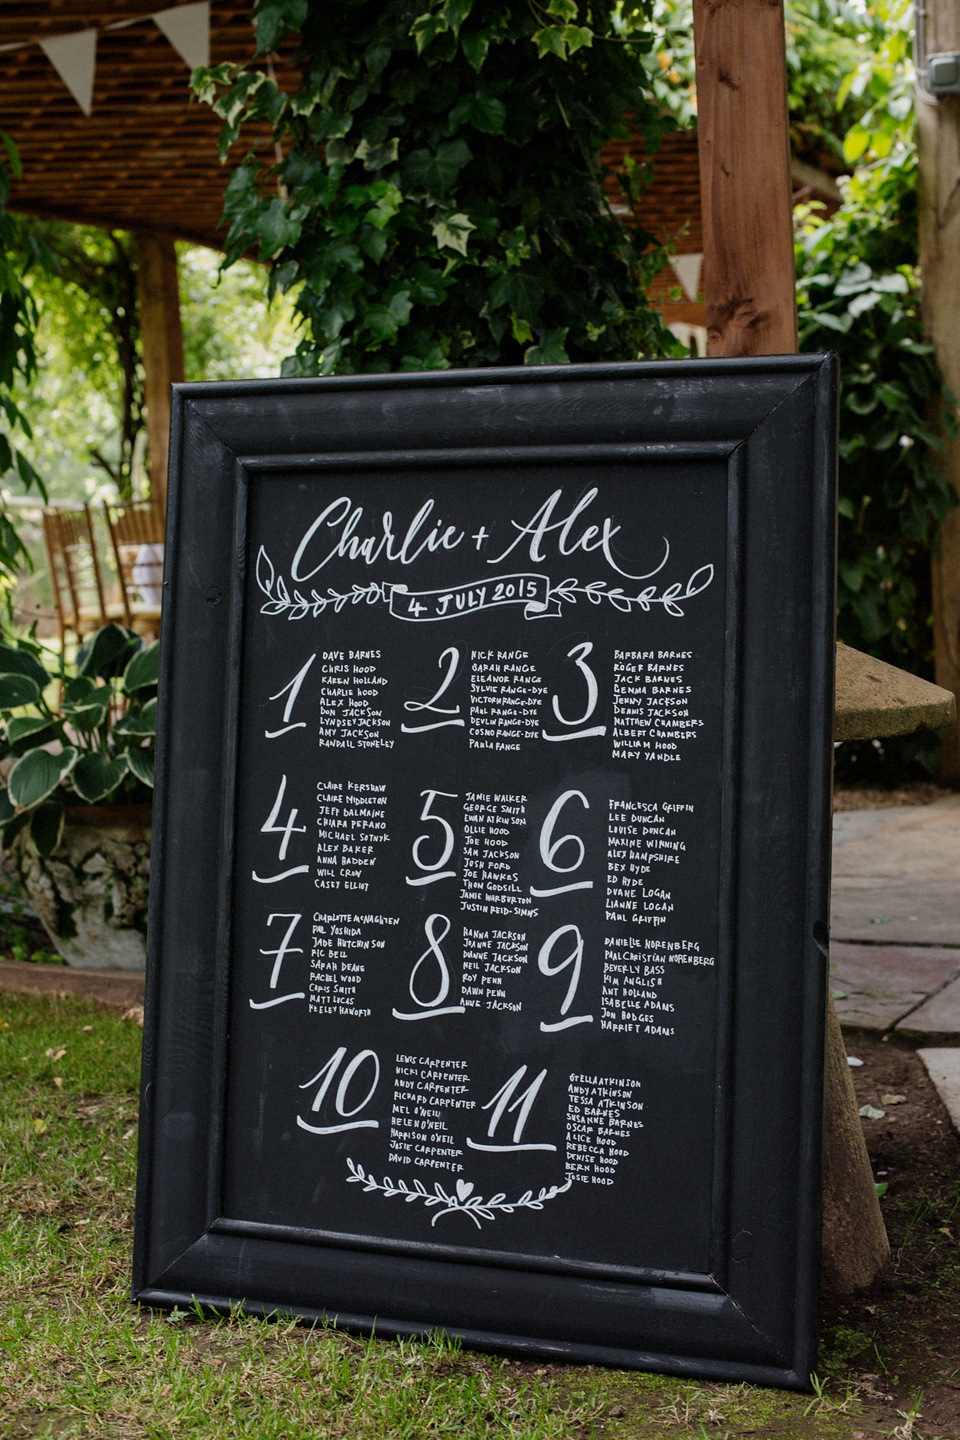 Charlie + Alex
4 JULY 2015
1
DAVE BARNES
CHRIS HOOD
KAREN HOLLAND
CHARLIE HOOD
ALEX HOOD
DON JACKSON
LYNDSEY JACKSON
AMY JACKSON
RANDALL STONELEY
2
NICK RANGE
SARAH RANGE
ELEANOR RANGE
SYLVIE RANGE-DYE
VICTORIA RANGE-DYE
PAUL RANGE-DYE
DEVLIN RANGE-DYE
COSMO RANGE-DYE
PAULA RANGE
3
BARBARA BARNES
ROGER BARNES
JACK BARNES
GEMMA BARNES
JENNY JACKSON
DENNIS JACKSON
MATTHEW CHAMBERS
ALBERT CHAMBERS
WILLIAM HOOD
MARY YANDLE
4
CLAIRE KERSHAW
CLAIRE MIDDLETON
JEFF DALMAINE
CHIARA PERANO
MICHAEL SOTNYK
ALEX BAKER
ANNA HADDEN
WILL CROW
CASEY ELLIOT
5
JANIE WALKER
GEORGE SMITH
EWAN ATKINSON
OLLIE HOOD
JOE HOOD
SAM JACKSON
JOSH FORD
JOE HAWKES
THOM GODSILL
JAMIE WARBURTON
JUSTIN REID-SIMMS
6
FRANCESCA GRIFFIN
LEE DUNCAN
LOUISE DUNCAN
MAXINE WINNING
ALEX HAMPSHIRE
BEX HYDE
ED HYDE
DUANE LOGAN
LIANNE LOGAN
PAUL GRIFFIN
7
CHARLOTTE McNAGHTEN
PHIL YOSHIDA
JADE HUTCHINSON
RIC BELL
SARAH DEANE
RACHEL WOOD
CHRIS SMITH
MATT LUCAS
KEELEY HAWORTH
8
HANNA JACKSON
JOANNE JACKSON
DIANNE JACKSON
NEIL JACKSON
ROY PENN
DAWN PENN
ANNE JACKSON
9
DANIELLE NORENBERG
PAAL CHRISTIAN NORENBERG
BEVERLY BASS
KIM ANGLISH
ANT HOLLAND
ISABELLE ADAMS
JON HODGES
HARRIET ADAMS
10
LEWIS CARPENTER
NICKI CARPENTER
ANDY CARPENTER
RICHARD CARPENTER
MEL O'NEIL
HELEN O'NEIL
HARRISON O'NEIL
JOSIE CARPENTER
DAVID CARPENTER
11
STELLA ATKINSON
ANDY ATKINSON
TESSA ATKINSON
ED BARNES
SUSANNE BARNES
OSCAR BARNES
ALICE HOOD
REBECCA HOOD
DENISE HOOD
BERN HOOD
JOSIE HOOD